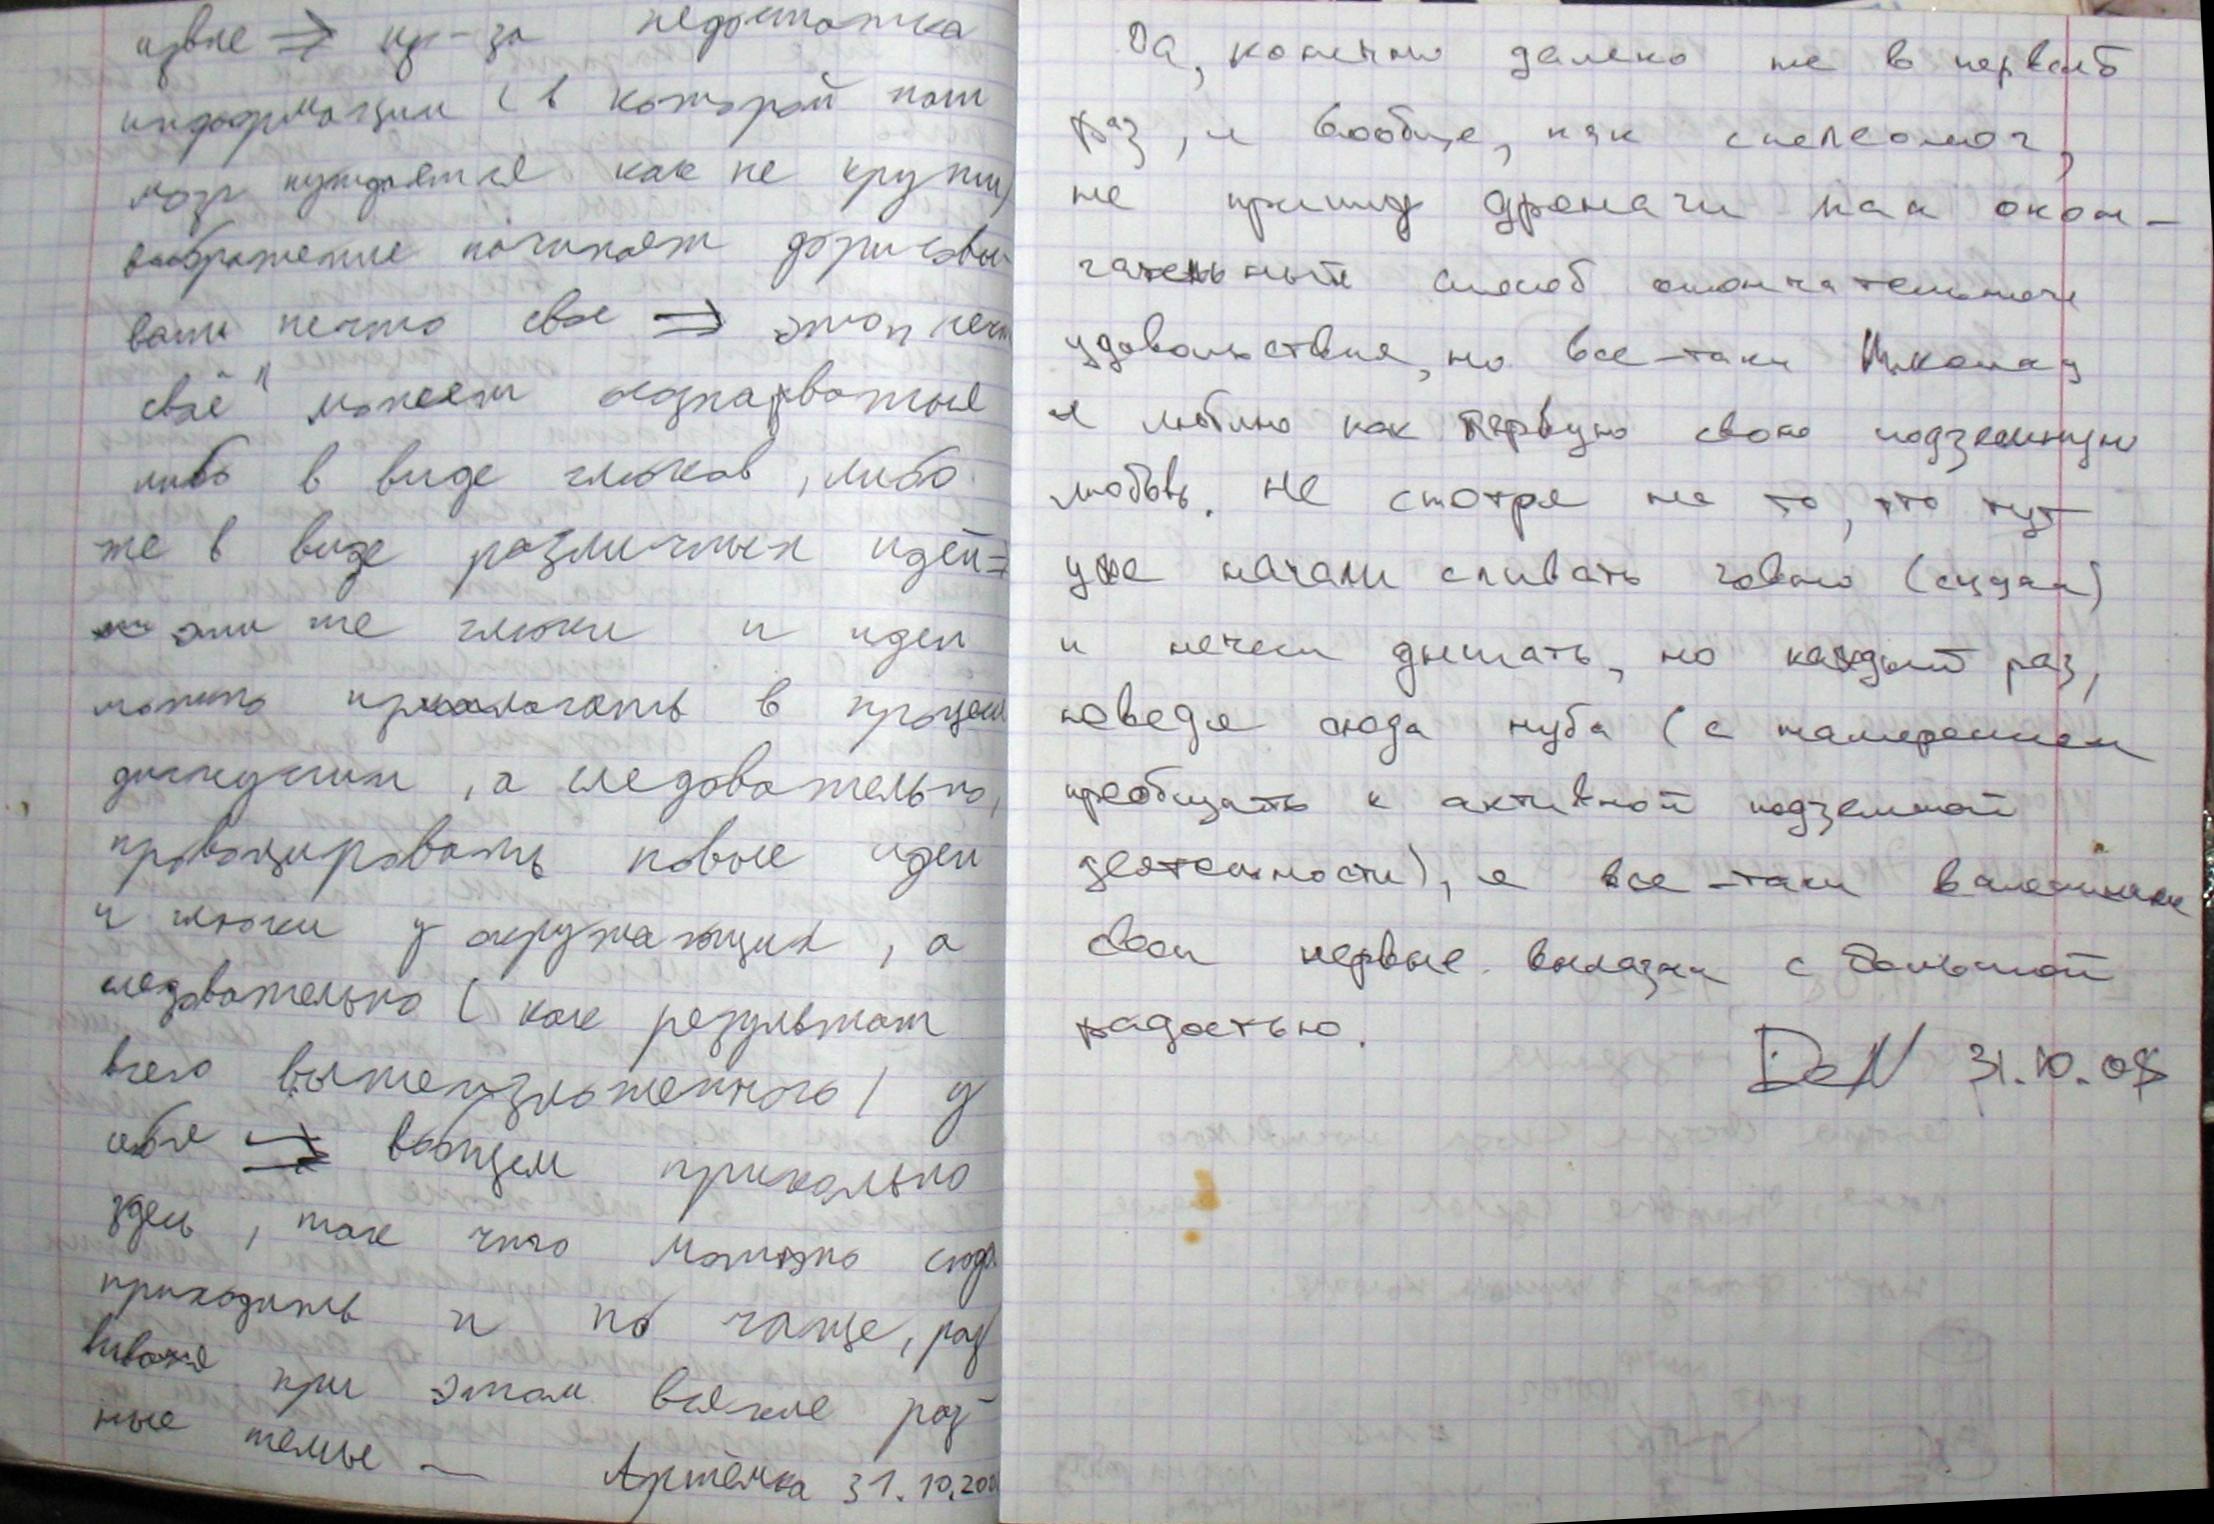 извне => из-за недостатка
информации (в которой наш
мозг нуждается как не крути)
воображение начинает дорисовы-
вать нечто свое => этоп нечто
своё" может
либо в виде глюков, либо
же в виде различных идей =>
эти же глюки и идеи
можно в процессе
дискуссии, а следовательно,
провоцировать новые идеи
и глюки у окружающих, а
следовательно (как результат
всего вышеизложенного) у
себя => вобщем прикольно
здесь, так что можно сюда
приходить и по чаще, раз
вивая при этом всякие раз-
ные темы — Артёмка 31.10.200
Да, конечно далеко не в первый
раз, и вообще, как спелеолог,
не как окон-
чательный способ окончательного
удовольствия, но все-таки Никольск
я люблю как первую свою подземную
любовь. Не смотря на то, что тут
уже начали сливать говно (сюда)
и нечем дышать, но каждый раз,
поведя сюда нуба (с намерением
преобщать к активной подземной
деятельности), я все-таки вспоминаю
свои первые вылазки с большой
радостью.
DeN 31.10.08